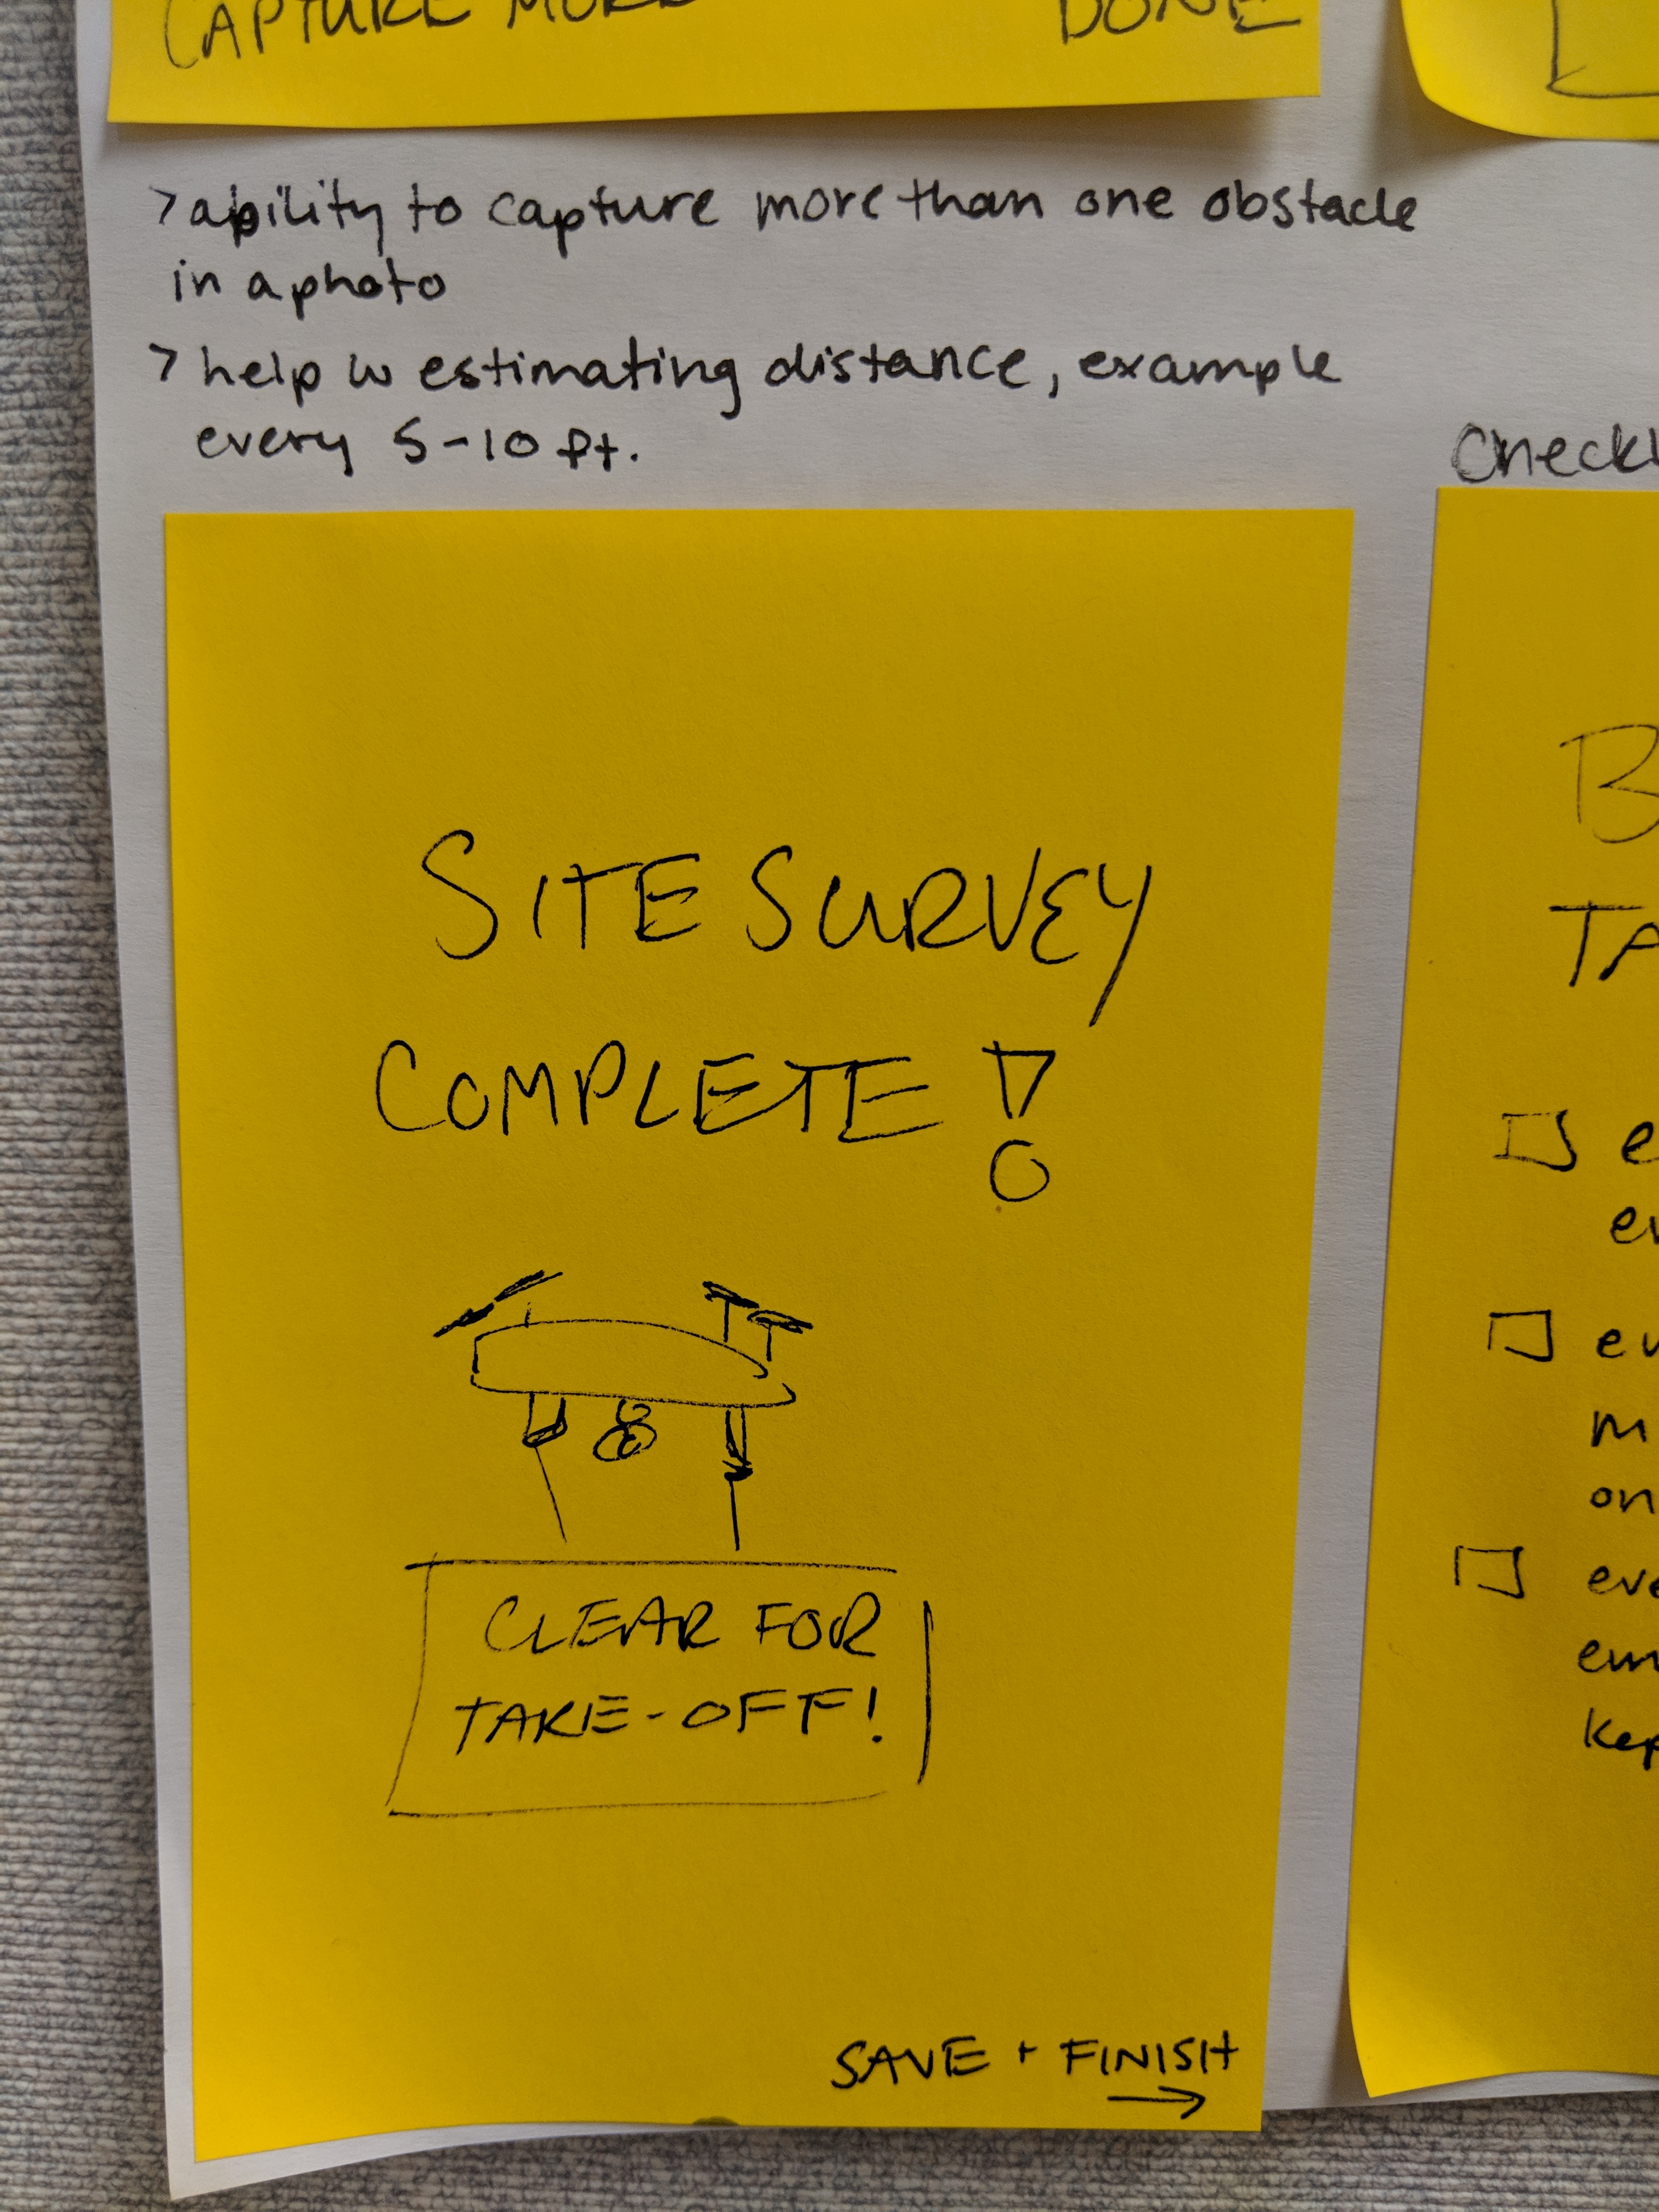 CAPTURE MORE DONE
> ability to capture more than one obstacle
in a photo
> help w estimating distance, example
every 5-10 ft.
SITE SURVEY
COMPLETE!
CLEAR FOR
TAKE-OFF!
SAVE + FINISH
→